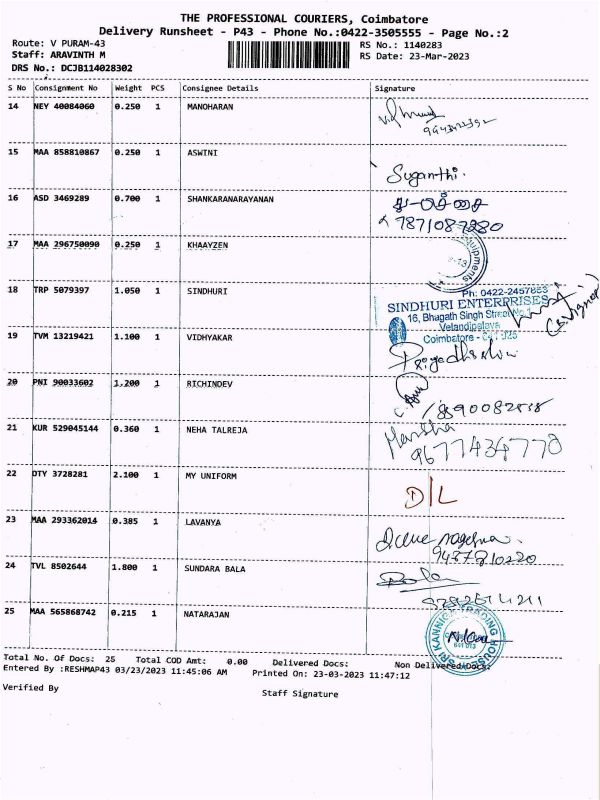 THE PROFESSIONAL COURIERS, Coimbatore
Delivery Runsheet - P43 - Phone No.:0422-3505555 - Page No.:2
Route: V PURAM-43 RS No.: 1140283
Staff: ARAVINTH M RS Date: 23-Mar-2023
DRS No.: DCJB114028302
S No Consignment No Weight PCS Consignee Details Signature
14 NEY 40084060 0.250 1 MANOHARAN
15 MAA 858810867 0.250 1 ASWINI
Suganthi.
16 ASD 3469289 0.700 1 SHANKARANARAYANAN
7871087280
17 MAA 296750090 0.250 1 KHAAYZEN
18 TRP 5079397 1.050 1 SINDHURI
Ph: 0422-2457853
SINDHURI ENTERPRISES
16, Bhagath Singh Street No.1
Velandipalaya
Coimbatore - 641 025
19 TVM 13219421 1.100 1 VIDHYAKAR
20 PNI 90033602 1.200 1 RICHINDEV
21 KUR 529045144 0.360 1 NEHA TALREJA
9677434770
22 DTY 3728281 2.100 1 MY UNIFORM
D/L
23 MAA 293362014 0.385 1 LAVANYA
9487810220
24 TVL 8502644 1.800 1 SUNDARA BALA
25 MAA 565868742 0.215 1 NATARAJAN
SRI KANNICA TRADING HOUSE
Total No. Of Docs: 25 Total COD Amt: 0.00 Delivered Docs: Non Delivered Docs:
Entered By :RESHMAP43 03/23/2023 11:45:06 AM Printed On: 23-03-2023 11:47:12
Verified By Staff Signature